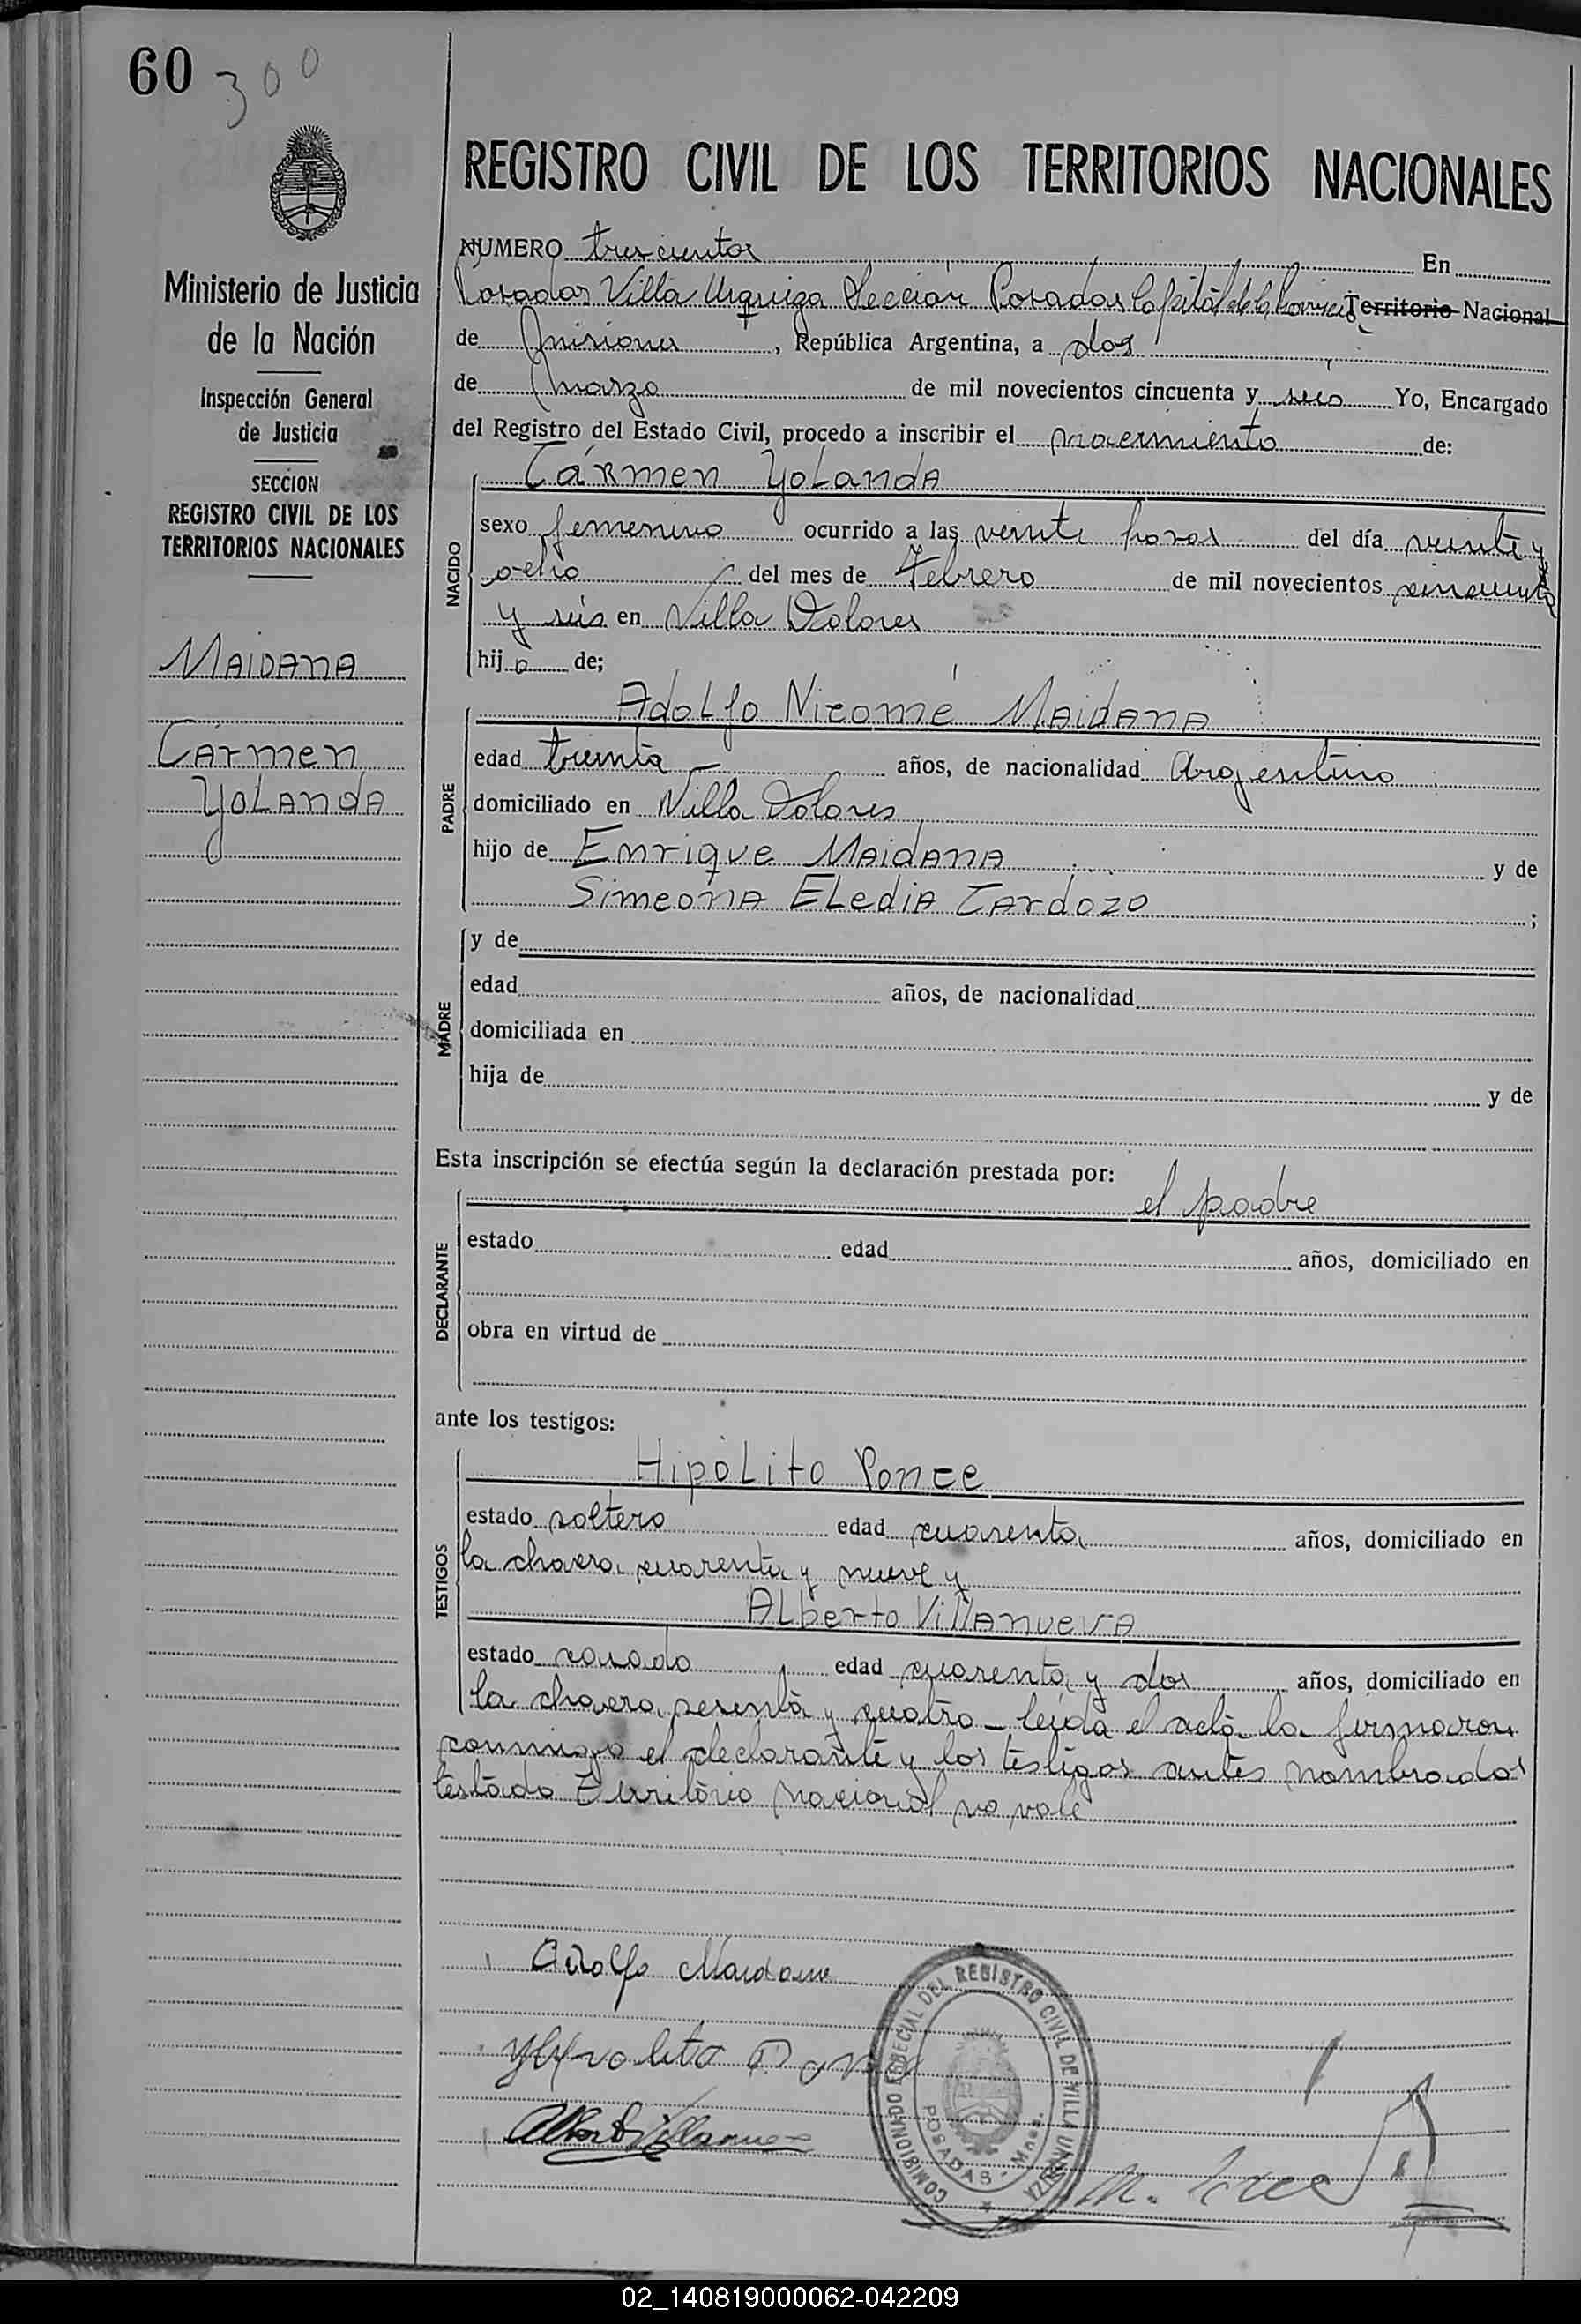 60 300
REGISTRO CIVIL DE LOS TERRITORIOS NACIONALES
Ministerio de Justicia
de la Nación
Inspección General
de Justicia
SECCION
REGISTRO CIVIL DE LOS
TERRITORIOS NACIONALES
MAIDANA
CARmen
YOLANDA
NUMERO trescientos En
Posadas Villa Urquiza Sección Posadas Capital de la Provincia Territorio Nacional
de Misiones, República Argentina, a dos
de marzo de mil novecientos cincuenta y seis Yo, Encargado
del Registro del Estado Civil, procedo a inscribir el nacimiento de:
NACIDO
Cármen YoLandA
sexo femenino ocurrido a las veinte horas del día veinte y
ocho del mes de Febrero de mil novecientos cincuenta
y seis en Villa Dolores
hija de;
PADRE
AdoLfo Nicomé MAidAnA
edad treinta años, de nacionalidad Argentino
domiciliado en Villa Dolores
hijo de Enrique MAidAnA y de
SimeonA ELediA CArdozo ;
MADRE
y de
edad años, de nacionalidad
domiciliada en
hija de y de
Esta inscripción se efectúa según la declaración prestada por:
el padre
DECLARANTE
estado edad años, domiciliado en
obra en virtud de
ante los testigos:
TESTIGOS
HipóLito Ponce
estado soltero edad cuarenta años, domiciliado en
la chacra cuarenta y nueve y
ALberto VillAnuevA
estado casado edad cuarenta y dos años, domiciliado en
la chacra sesenta y cuatro - leida el acta la firmaron
conmigo el declarante y los testigos antes nombrados
testado Territorio Nacional no vale
Adolfo Maidana
COMISIONADO ESPECIAL DEL REGISTRO CIVIL DE VILLA URQUIZA
POSADAS - Mnes.
02_140819000062-042209